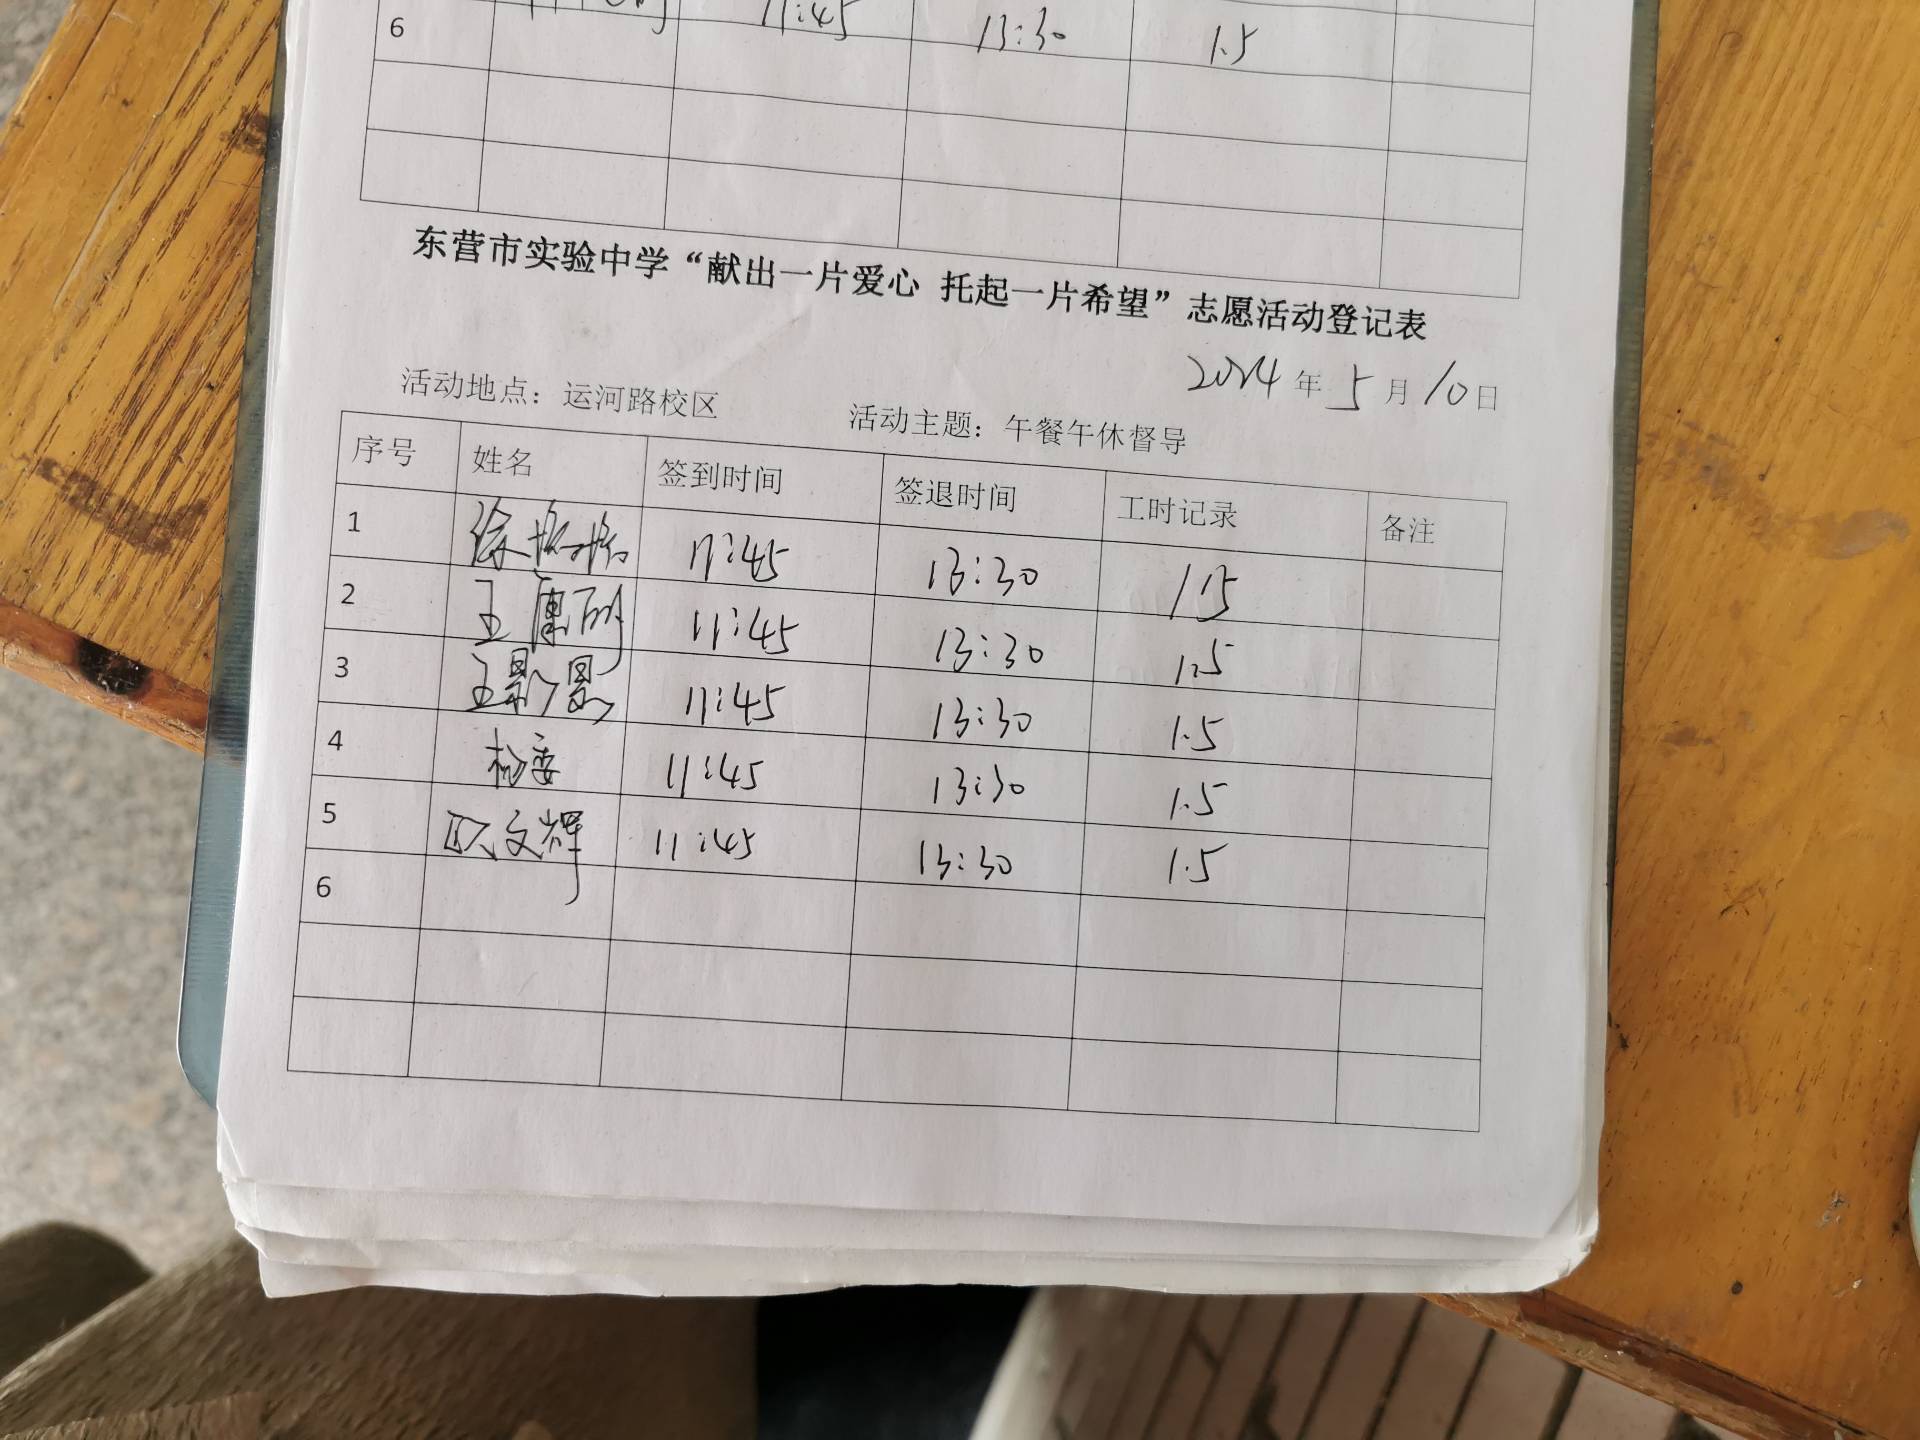 6 11:45 13:30 1.5
东营市实验中学“献出一片爱心 托起一片希望”志愿活动登记表
2024年5月10日
活动地点：运河路校区 活动主题：午餐午休督导
序号 姓名 签到时间 签退时间 工时记录 备注
1 徐 11:45 13:30 1.5
2 王 11:45 13:30 1.5
3 王 11:45 13:30 1.5
4 11:45 13:30 1.5
5 欧文辉 11:45 13:30 1.5
6